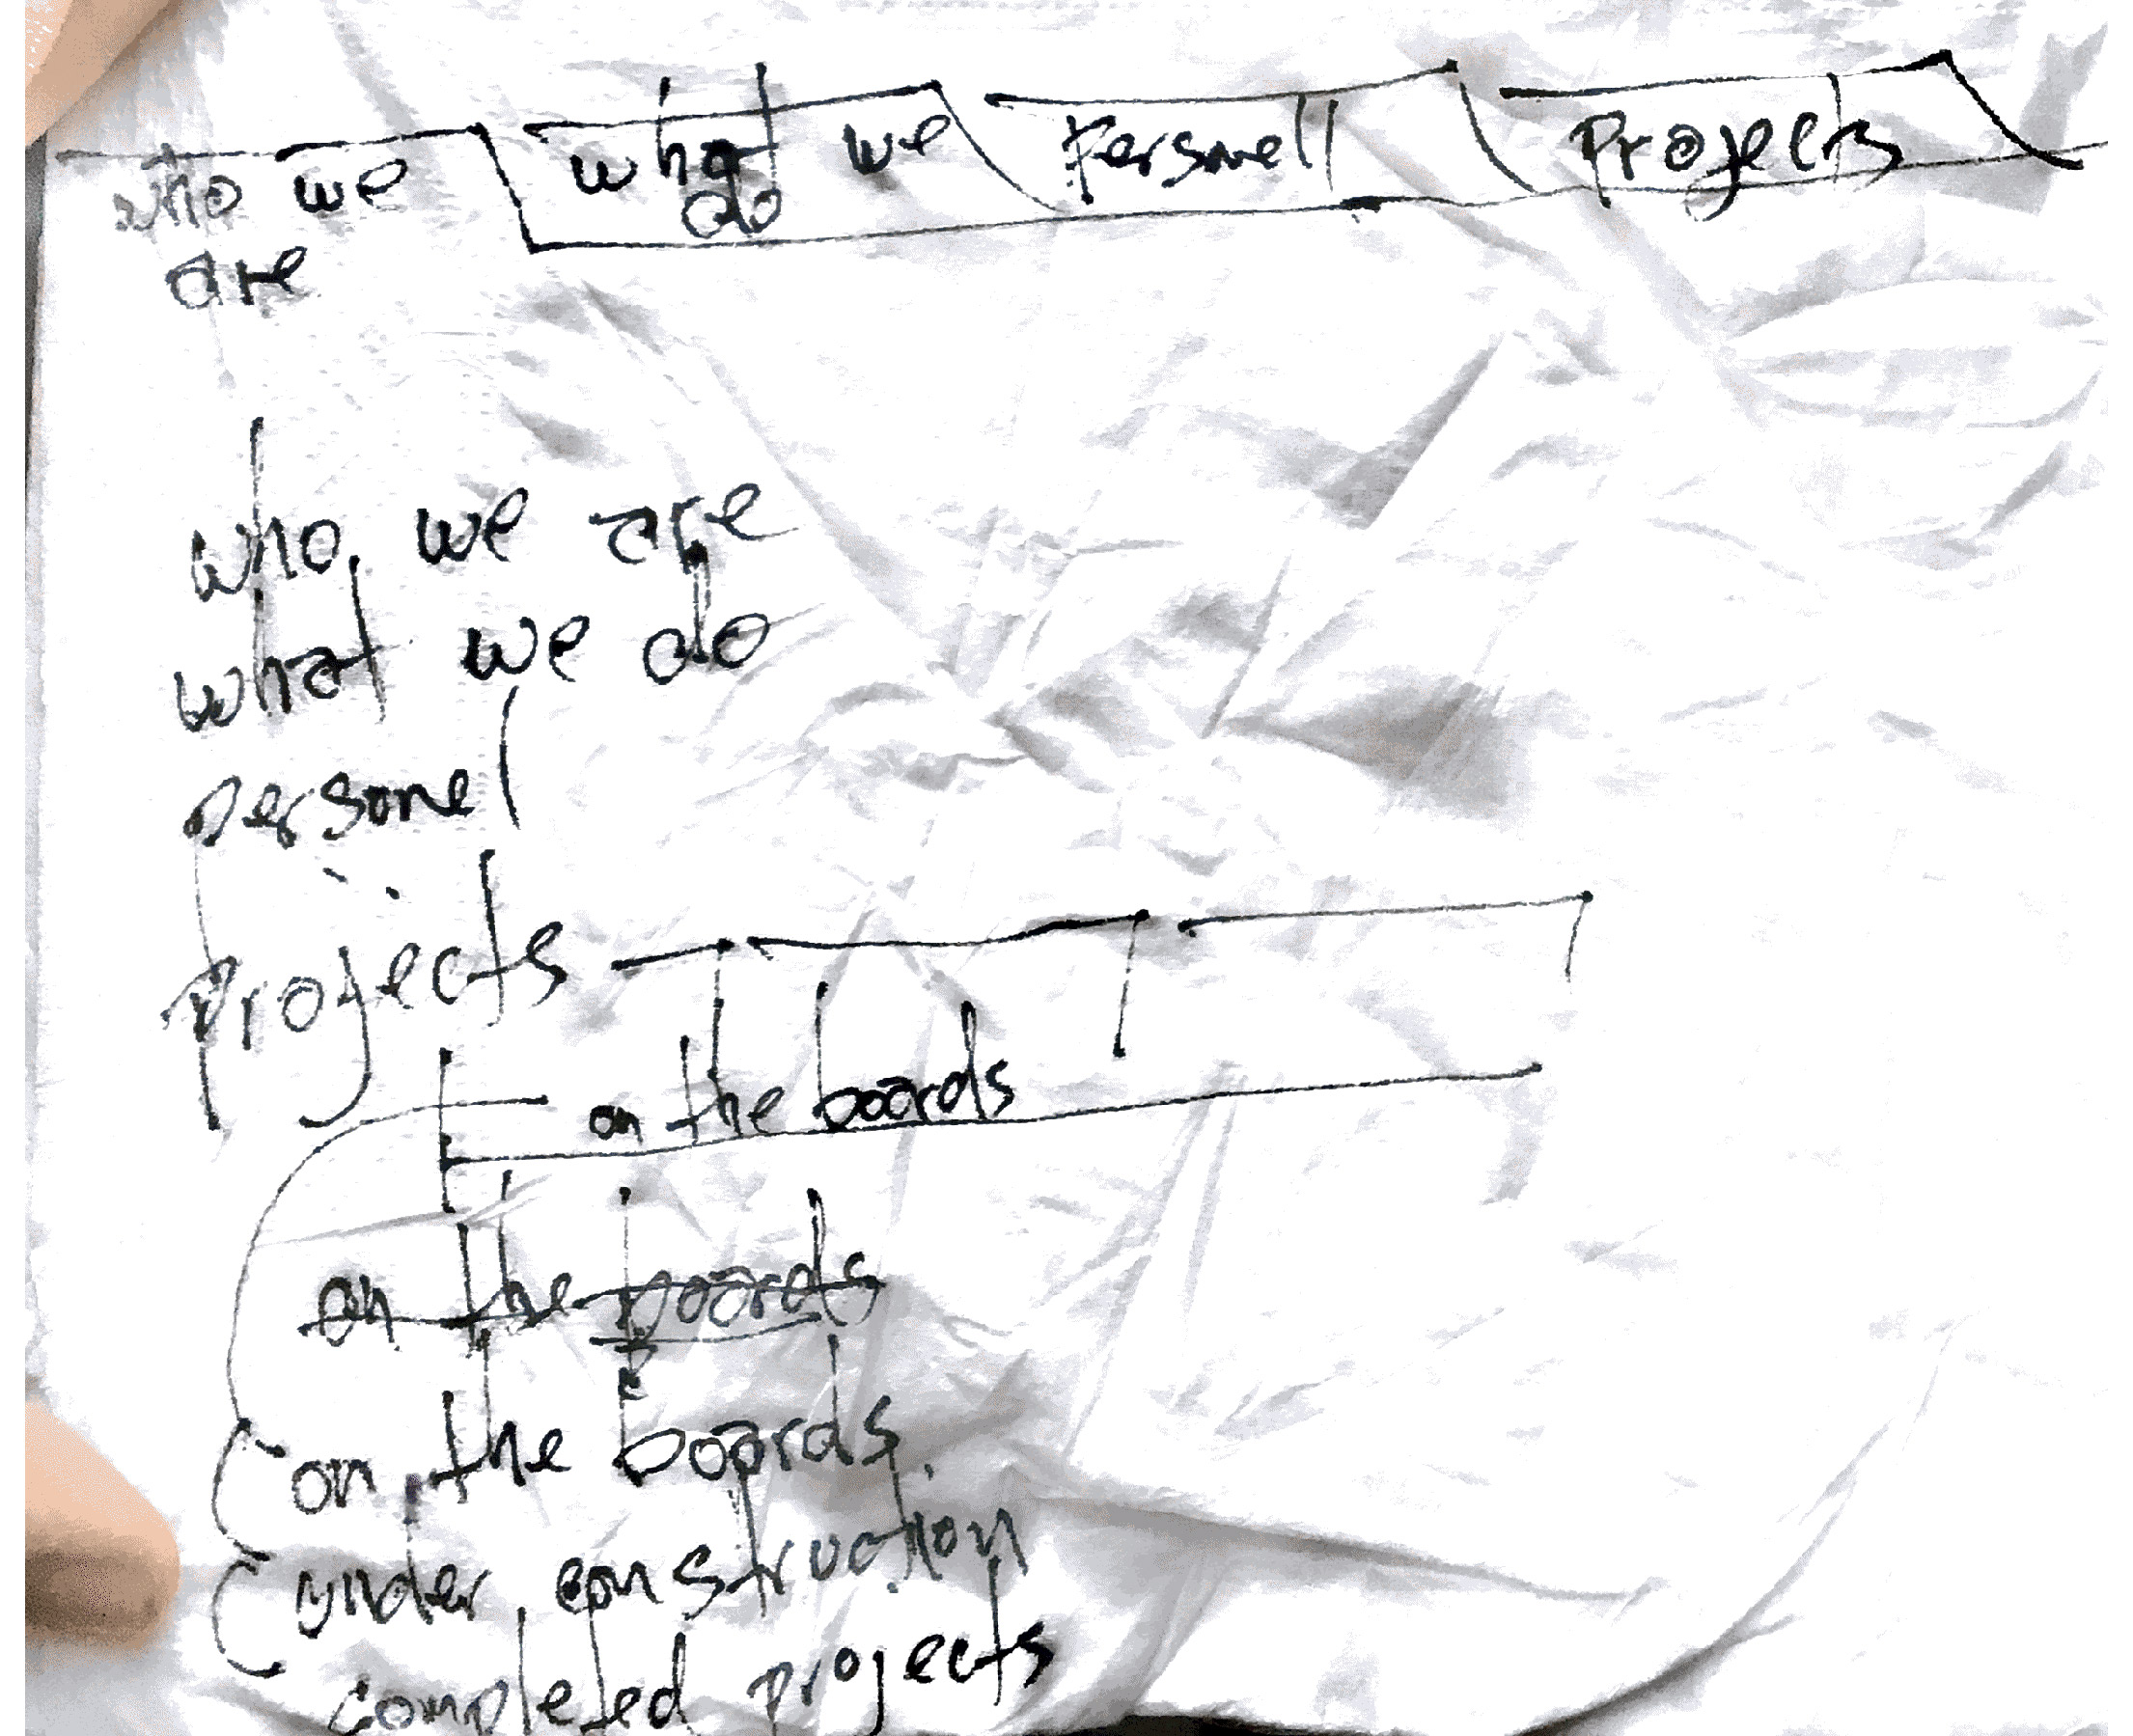 who we what we Personell Projects
are do
who we are
what we do
personel
projects
on the boards
on the boards
on the boards.
under construction
completed projects